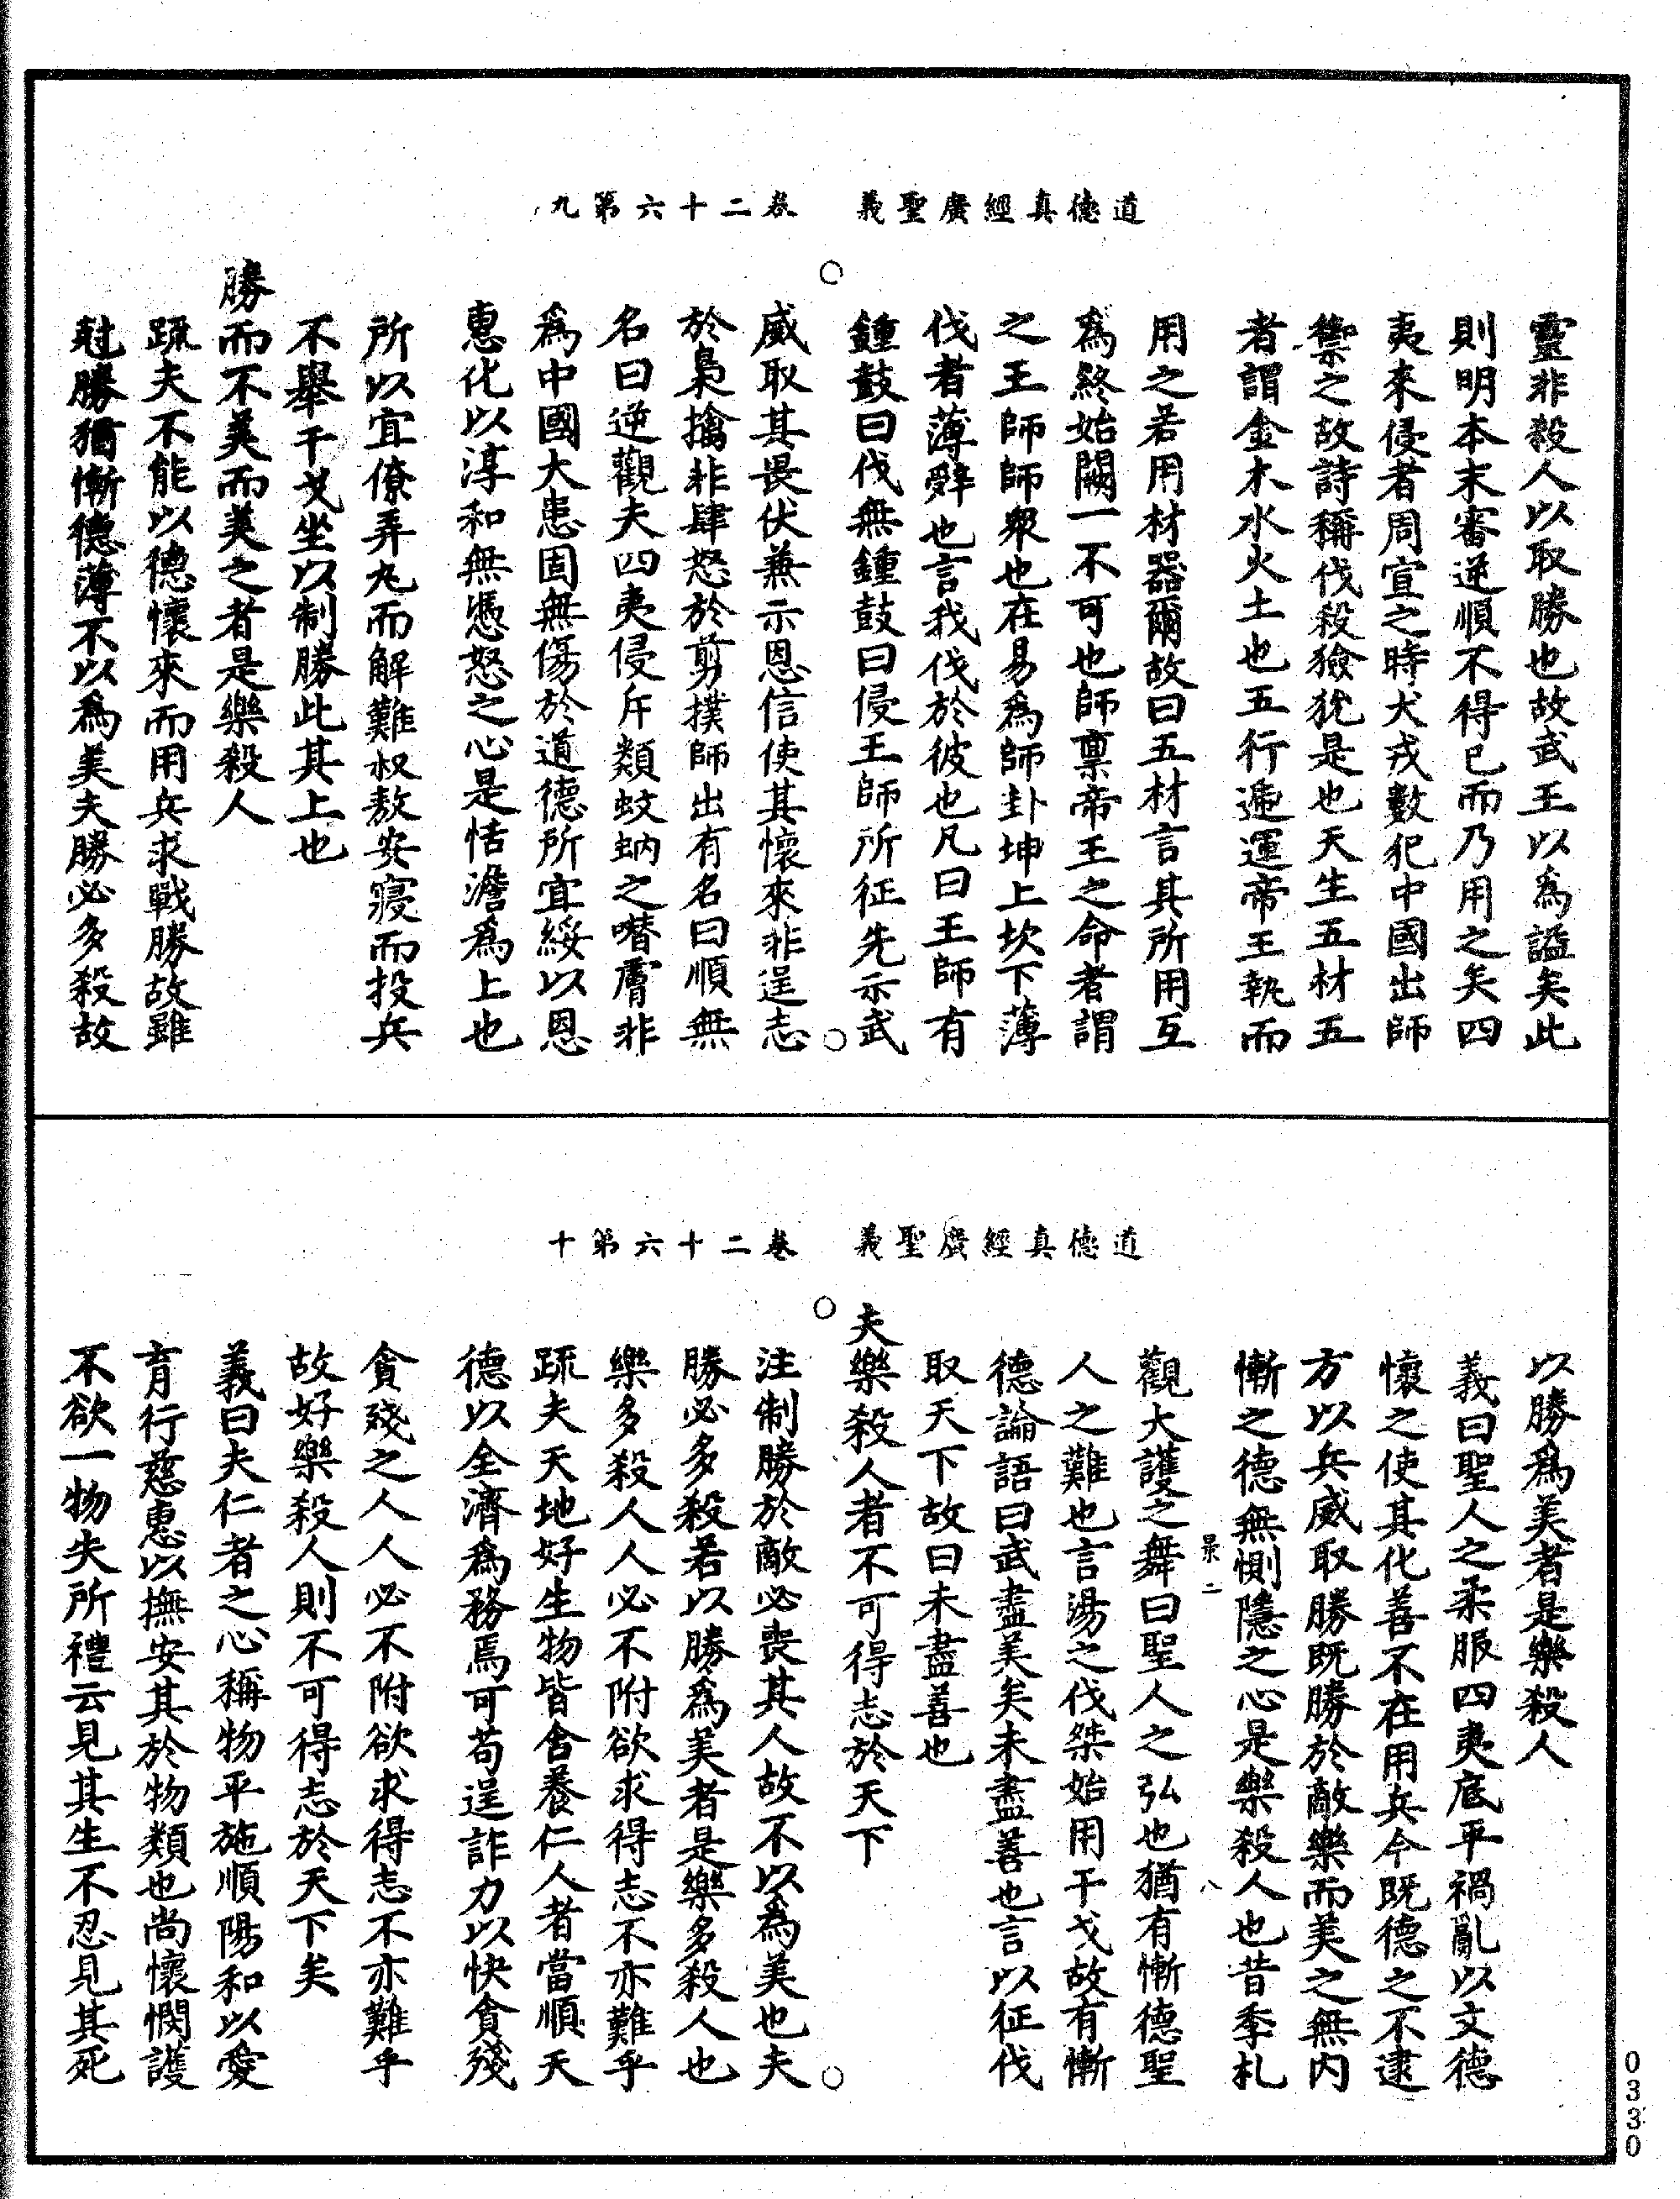 道德真經廣聖義　卷二十六第九
靈非殺人以取勝也故武王以為謚矣此
則明本末審逆順不得已而乃用之矣四
夷來侵者周宣之時犬戎數犯中國出師
禦之故詩稱伐殺獫狁是也天生五材五
者謂金木水火土也五行遞運帝王執而
用之若用材器爾故曰五材言其所用互
為終始闕一不可也師稟帝王之命者謂
之王師師衆也在易為師卦坤上坎下薄
伐者薄辭也言我伐於彼也凡曰王師有
鍾鼓曰伐無鍾鼓曰侵王師所征先示武
威取其畏伏兼示恩信使其懷來非逞志
於梟擒非肆怒於剪撲師出有名曰順無
名曰逆觀夫四夷侵斥類蚊蚋之噆膚非
為中國大患固無傷於道德所宜綏以恩
惠化以淳和無憑怒之心是恬澹為上也
所以宜僚弄丸而解難叔敖安寢而投兵
不舉干戈坐以制勝此其上也
勝而不美而美之者是樂殺人
疏夫不能以德懷來而用兵求戰勝故雖
尅勝猶慚德薄不以為美夫勝必多殺故
道德真經廣聖義　卷二十六第十
以勝為美者是樂殺人
義曰聖人之柔服四夷底平禍亂以文德
懷之使其化善不在用兵今既德之不逮
方以兵威取勝既勝於敵樂而美之無內
慚之德無惻隱之心是樂殺人也昔季札
景二　八
觀大護之舞曰聖人之弘也猶有慚德聖
人之難也言湯之伐桀始用干戈故有慚
德論語曰武盡美矣未盡善也言以征伐
取天下故曰未盡善也
夫樂殺人者不可得志於天下
注制勝於敵必喪其人故不以為美也夫
勝必多殺若以勝為美者是樂多殺人也
樂多殺人人必不附欲求得志不亦難乎
疏夫天地好生物皆含養仁人者當順天
德以全濟為務焉可苟逞詐力以快貪殘
貪殘之人人必不附欲求得志不亦難乎
故好樂殺人則不可得志於天下矣
義曰夫仁者之心稱物平施順陽和以愛
育行慈惠以撫安其於物類也尚懷憫護
不欲一物失所禮云見其生不忍見其死
0330